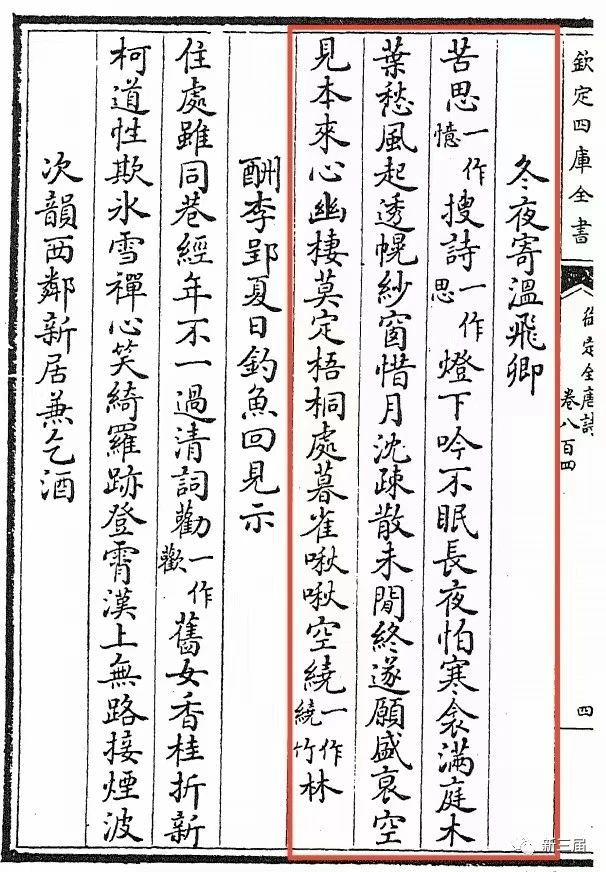 欽定四庫全書
御定全唐詩
卷八百四
四
冬夜寄溫飛卿
苦思一作憶搜詩一作思燈下吟不眠長夜怕寒衾滿庭木
葉愁風起透幌紗窗惜月沈疎散未閒終遂願盛衰空
見本來心幽棲莫定梧桐處暮雀啾啾空繞一作繞竹林
酬李郢夏日釣魚回見示
住處雖同巷經年不一過清詞勸一作歡舊女香桂折新
柯道性欺氷雪禪心笑綺羅跡登霄漢上無路接煙波
次韻西鄰新居兼乞酒
新三届